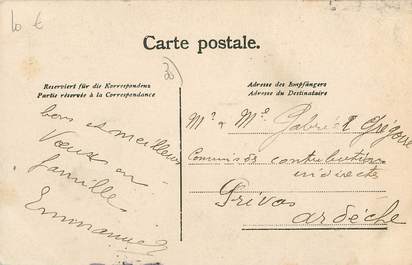 10 €
Carte postale.
30
Reserviert für die Korrespondenz
Partie réservée à la Correspondance
Adresse des Empfängers
Adresse du Destinataire
bons et meilleurs
Vœux en
famille
Emmanuel
Mr & Me Gabriel Grégoire
Commis des contributions
indirecte
Privas
ardèche